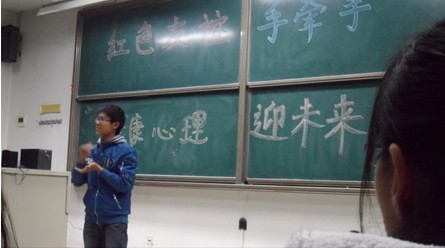 红色
手牵手
康心理
迎未来